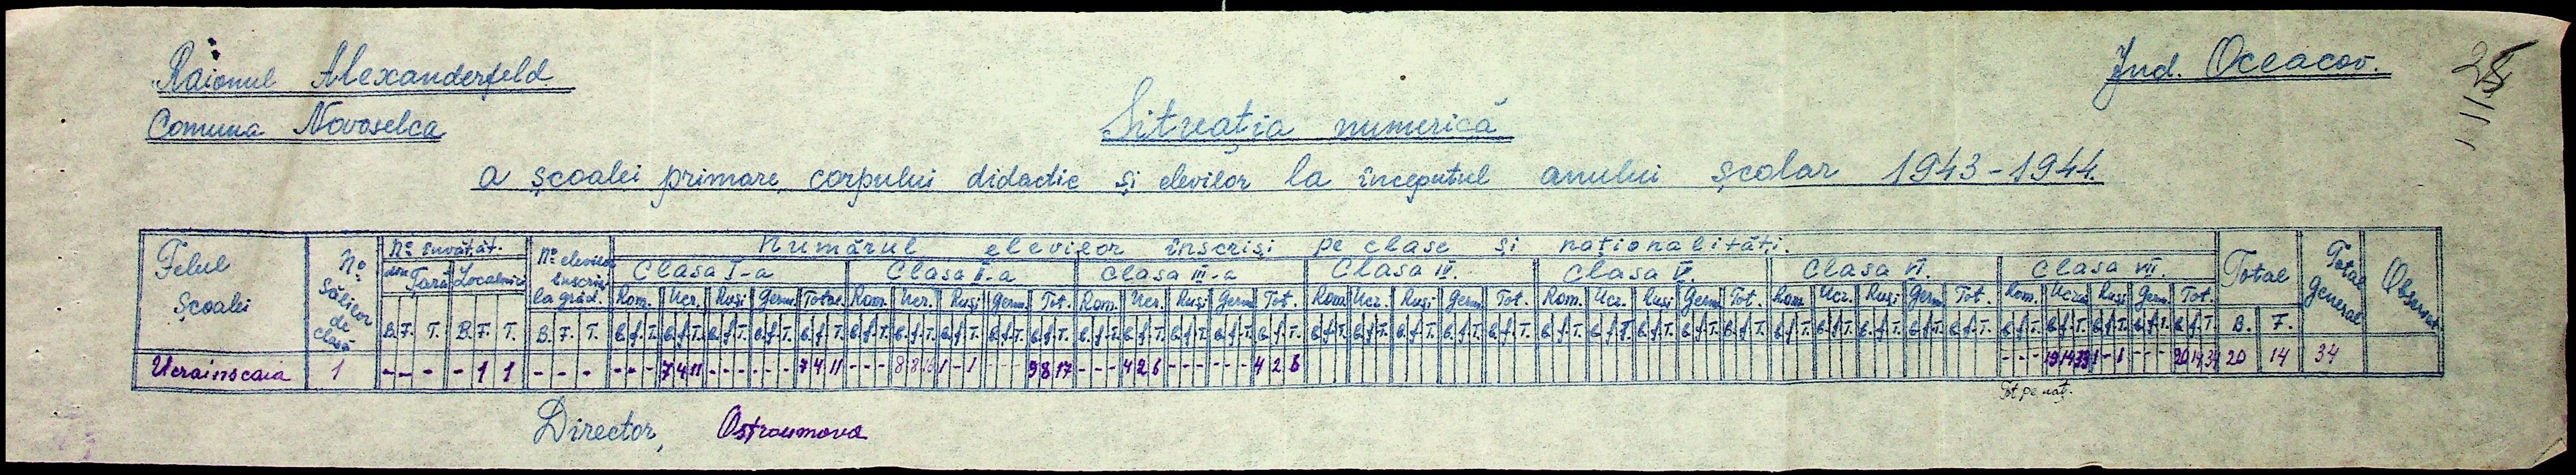 Raionul Alexanderfeld
Jud. Oceacov.
Comuna Novoselca
Situația numerică
a școalei primare, corpului didactic și elevilor la începutul anului școlar 1943-1944.
Felul Școalei
No Sălilor de clasă
No învățăt.
din Țară Localnici
No elevilor înscriși la grăd.
Numărul elevilor înscriși pe clase și naționalități.
Clasa I-a Clasa II-a Clasa III-a Clasa IV. Clasa V. Clasa VI. Clasa VII.
Total
Total general
Observat
Rom. Ucr. Ruși Germ. Total Rom. Ucr. Ruși Germ. Tot. Rom. Ucr. Ruși Germ. Tot. Rom. Ucr. Ruși Germ. Tot. Rom. Ucr. Ruși Germ. Tot. Rom. Ucr. Ruși Germ. Tot. Rom. Ucr. Ruși Germ. Tot.
B. F. T. B. F. T. B. F. T. B. f. T. B. f. T. B. f. T. B. f. T. B. f. T. B. f. T. B. f. T. B. f. T. B. f. T. B. f. T. B. f. T. B. f. T. B. f. T. B. f. T. B. f. T. B. f. T. B. f. T. B. f. T. B. f. T. B. f. T. B. f. T. B. f. T. B. f. T. B. f. T. B. f. T. B. f. T. B. f. T. B. f. T. B. f. T. B. f. T. B. f. T. B. f. T. B. f. T. B. f. T. B. f. T. B. F.
Ucrainscaia 1 - - - - 1 1 - - - - - - 7 4 11 - - - - - - 7 4 11 - - - 8 8 16 1 - 1 - - - 9 8 17 - - - 4 2 6 - - - - - - 4 2 6 - - - 19 14 33 1 - 1 - - - 20 14 34 20 14 34
Tot pe naț.
Director, Ostroumova